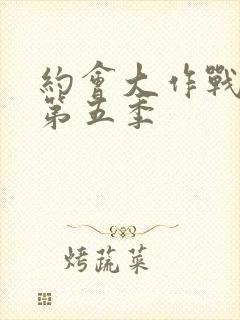 約會大作戰
第五季
烤蔬菜